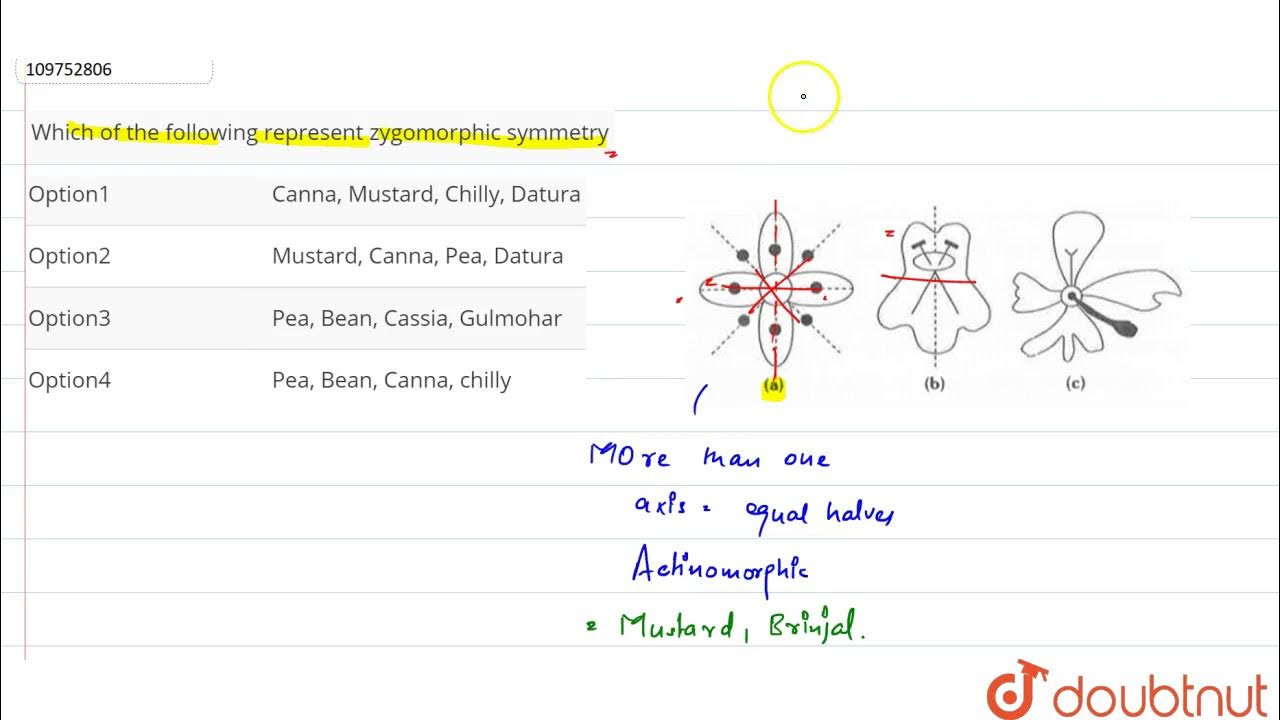 109752806
Which of the following represent zygomorphic symmetry
Option1 Canna, Mustard, Chilly, Datura
Option2 Mustard, Canna, Pea, Datura
Option3 Pea, Bean, Cassia, Gulmohar
Option4 Pea, Bean, Canna, chilly
(a) (b) (c)
MOre than one
axis = equal halves
Actinomorphic
= Mustard, Brinjal.
doubtnut